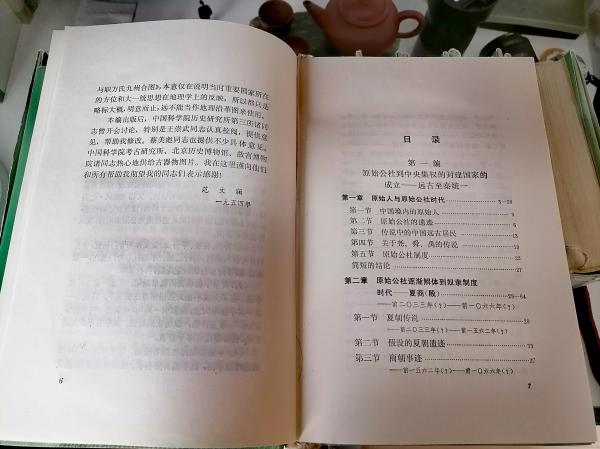 与职方氏九州合图》，本意仅在说明当时重要国家所在
的方位和大一统思想在地理学上的反映；所以都只是
略标大概，明意而止，远不能当作地理沿革图来使用。
本编出版后，中国科学院历史研究所第三所诸同
志曾开会讨论，特别是王崇武同志认真校阅，提供意
见，帮助我修改，蔡美彪同志也提供不少具体意见。
中国科学院考古研究所、北京历史博物馆、故宫博物
院诸同志热心地供给古器物图片。我在这里谨向他们
和所有帮助我期望我的同志们表示感谢！
范文澜
一九五四年
6
目录
第一编
原始公社到中央集权的封建国家的
成立——远古至秦统一
第一章 原始人与原始公社时代 3—28
第一节 中国境内的原始人 3
第二节 原始公社的遗迹
第三节 传说中的中国远古居民 13
第四节 关于尧、舜、禹的传说
第五节 原始公社制度
简短的结论 27
第二章 原始公社逐渐解体到奴隶制度
时代——夏商（殷） 29—64
——前二〇三三年（？）——前一〇六六年（？）
第一节 夏朝传说
——前二〇三三年（？）——前一五六二年（？）
第二节 假设的夏朝遗迹
第三节 商朝事迹
——前一五六二年（？）——前一〇六六年（？）
7